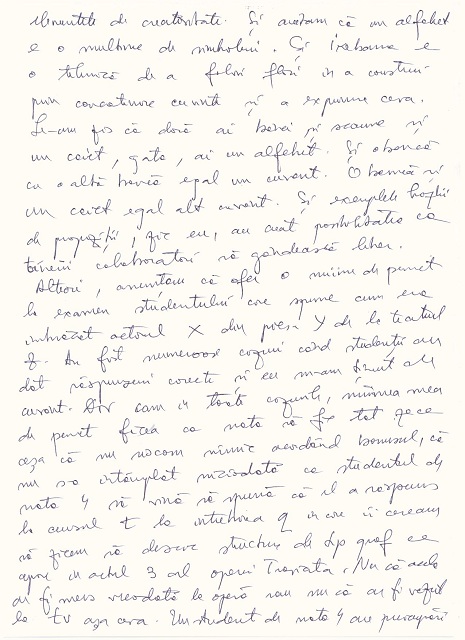 elementele de creativitate. Și arătam că un alfabet
e o mulțime de simboluri. Și treaba e
o tehnică de a folosi în a construi
prin concatenare cuvinte și a exprima ceva.
Le-am zis că dacă ai beci și scaune și
un caiet, gata, ai un alfabet. Și o bancă
cu o altă bancă egal un cuvânt. O bancă și
un caiet egal alt cuvânt. Și exemplele
de propoziții, zic eu, au creat posibilitatea ca
tinerii colaboratori să gândească liber.
Alteori, anunțam că ofer o mărime de punct
la examen studentului care spune cum era
îmbrăcat actorul X din piesa Y de la teatrul
Z. Au fost numeroase cazuri când studenții au
dat răspunsuri corecte și eu m-am ținut de
cuvânt. Dar cam în toate cazurile, mărimea mea
de punct făcea ca nota să fie tot zece
așa că nu riscam nimic acordând bonusul, că
nu s-a întâmplat niciodată ca studentul de
nota 4 să vină să spună că el a răspuns
la cursul t la întrebarea q în care îi ceream
să zicem să descrie structura de tip graf ce
apare în actul 3 al operei Traviata. Nu că acela
ar fi mers vreodată la operă sau nu că ar fi văzut
la tv așa ceva. Un student de nota 4 are